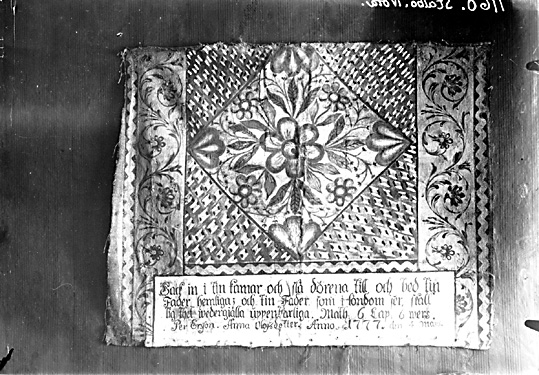 1160. Stabo, Nora.
Gack in i tin kamar och slå dörena till, och bed tin
Fader hemliga; och tin Fader som i lönbom ser, skall
tig thet wedergjälla uppenbarliga. Math. 6 Cap. 6 wers.
Per Erson. Anna Olofsdotter. Anno. 1777. den